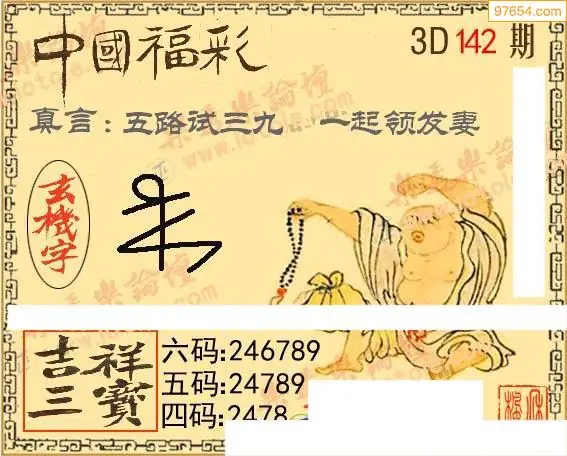 97654.com
中國福彩
3D 142 期
真言：五路试三九 一起领发妻
玄機字
吉祥三寶
六码:246789
五码:24789
四码:2478